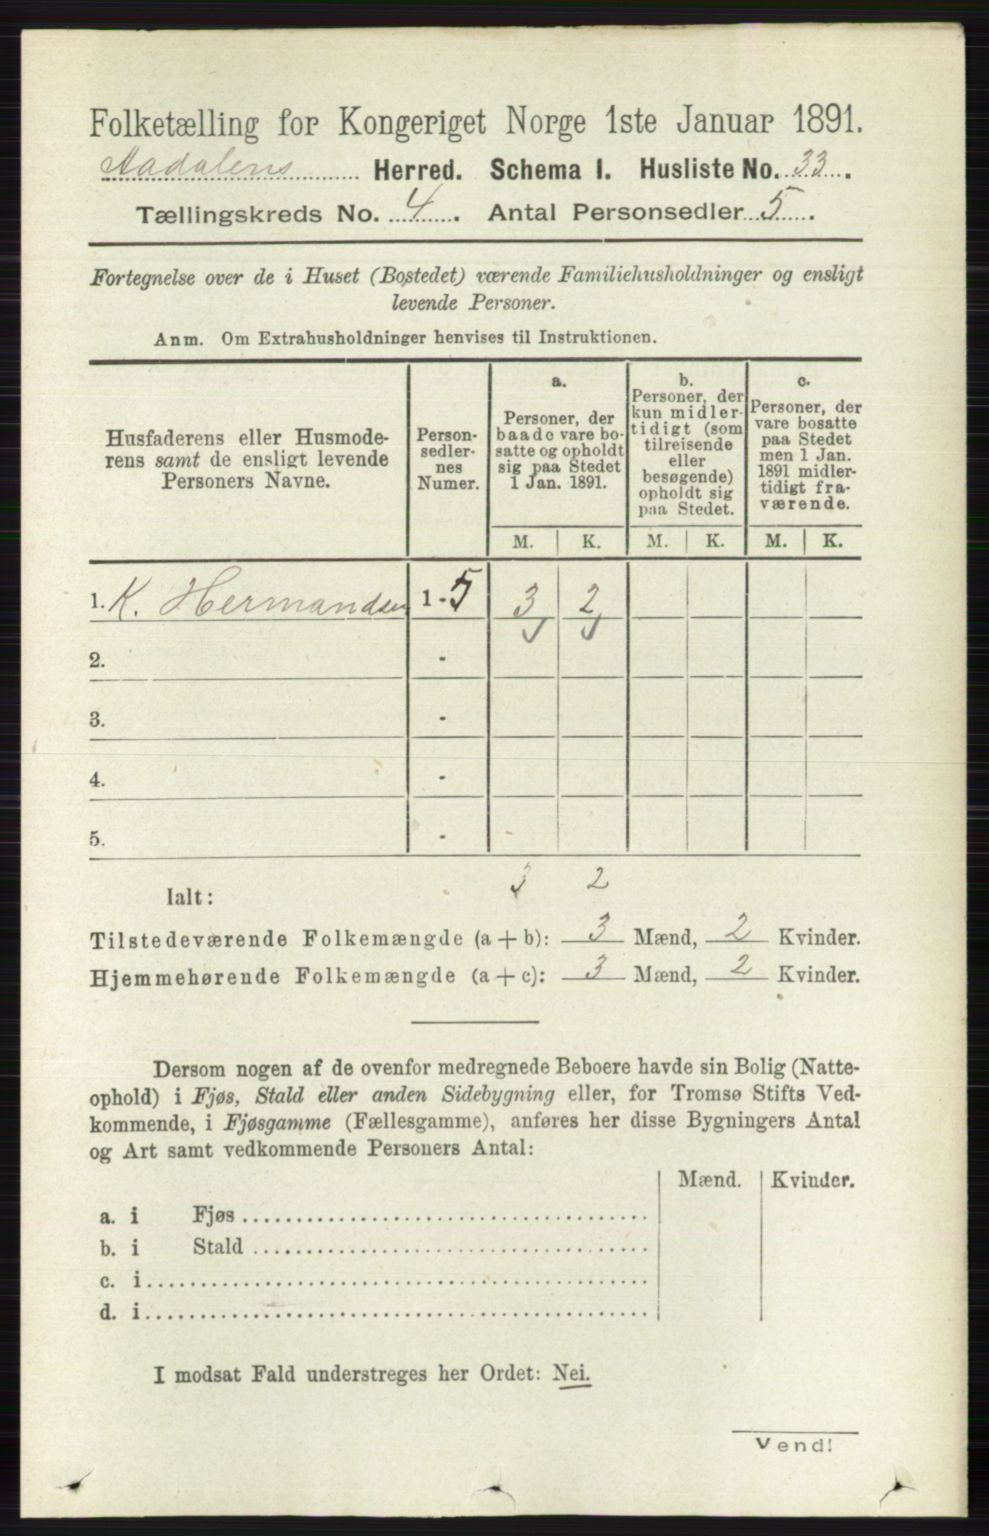 Folketælling for Kongeriget Norge 1ste Januar 1891.
Aadalens Herred. Schema I. Husliste No. 33.
Tællingskreds No. 4. Antal Personsedler 5.
Fortegnelse over de i Huset (Bostedet) værende Familiehusholdninger og ensligt
levende Personer.
Anm. Om Extrahusholdninger henvises til Instruktionen.
Husfaderens eller Husmode-
rens samt de ensligt levende
Personers Navne.
Person-
sedler-
nes
Numer.
a.
Personer, der
baade vare bo-
satte og opholdt
sig paa Stedet
1 Jan. 1891.
b.
Personer, der
kun midler-
tidigt (som
tilreisende
eller
besøgende)
opholdt sig
paa Stedet.
c.
Personer, der
vare bosatte
paa Stedet
men 1 Jan.
1891 midler-
tidigt fra-
værende.
M. K. M. K. M. K.
1. K. Hermandsen 1 - 5 3 2
2. -
3. -
4. -
5. -
Ialt: 3 2
Tilstedeværende Folkemængde (a + b): 3 Mænd, 2 Kvinder.
Hjemmehørende Folkemængde (a + c): 3 Mænd, 2 Kvinder.
Dersom nogen af de ovenfor medregnede Beboere havde sin Bolig (Natte-
ophold) i Fjøs, Stald eller anden Sidebygning eller, for Tromsø Stifts Ved-
kommende, i Fjøsgamme (Fællesgamme), anføres her disse Bygningers Antal
og Art samt vedkommende Personers Antal:
Mænd. Kvinder.
a. i Fjøs
b. i Stald
c. i
d. i
I modsat Fald understreges her Ordet: Nei.
Vend!